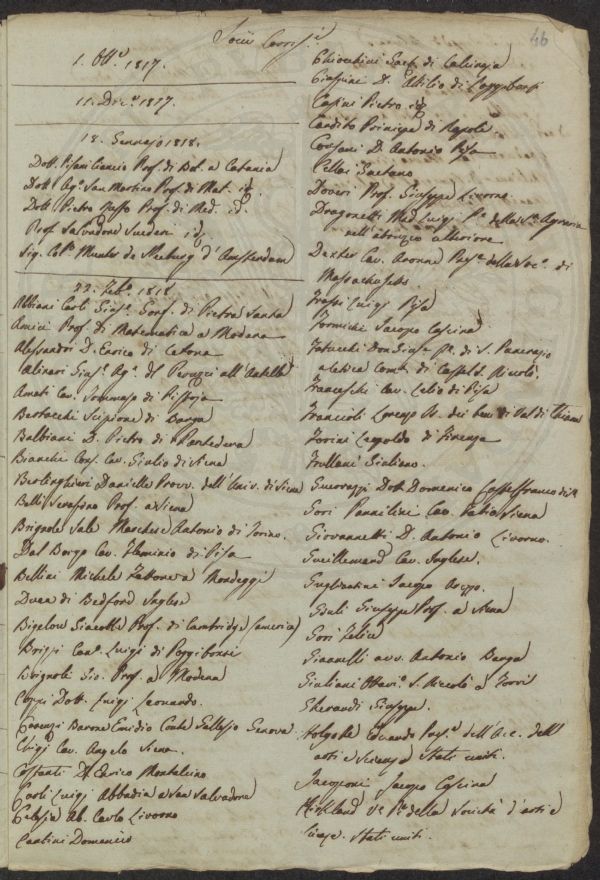 Socii Corrisp.i
46
1. Ott.e 1817.
11. Dic.e 1817.
18. Gennajo 1818.
Dott. Pisani Ciancio Prof. di Bot. a Catania
Dott. Ag.o San Martino Prof. di Mat. id.
Dott. Pietro Prof. di Med. id.
Prof. Salvadore Scuderi id.
Sig. Munter de Meeburg d'Amsterdam
22. Feb.o 1818
Abbiani Carl Gius.e Gonf. di Pietra Santa
Amici Prof. di Matematica a Modena
Alessandri D. Enrico di Cetona
Alinari Gius.e Ag.e del Peruzzi all'Antella
Amati Cav. Tommaso di Pistoja
Bertacchi Scipione di Barga
Balbiani D. Pietro di Pontedera
Bianchi Cav. Giulio di Siena
Berlinghieri Daniello Provv. dell'Univ. di Siena
Belli Serafino Prof. a Siena
Brignole Sale Marchese Antonio di Torino.
Dal Borgo Cav. Flaminio di Pisa
Bellini Michele Fattore a Mondeggi
Duca di Bedford Inglese
Bigelow Giacobbe Prof. di Cambridge (America)
Brizzi Luigi di Poggibonsi
Brignoli Gio. Prof. a Modena
Coppi Dott. Luigi Leonardo.
Barone Emidio Conte Gallesio Genova
Cav. Angelo Siena.
Costanti D. Enrico Montalcino
Luigi Abbadia a San Salvadore
Ab. Carlo Livorno
Cantini Domenico
Ghiontini di
D. Attilio di Poggibonsi
Casini Pietro id.
Cardito Principe di Napoli
D. Antonio Pisa
Cellai Gaetano
Doveri Prof. Giuseppe Livorno
Dragonetti Luigi P.e della S.à Agraria
nell'abruzzo ulteriore
Dexter Cav. Aronne Pres.e della Soc.à di
Massachusets.
Frassi Luigi Pisa
Formichi Jacopo Cascina
Fatucchi Don Gius. di S. Pancrazio
a Com. di Niccolò.
Franceschi Cav. Lelio di Pisa
Francioli Lorenzo dei beni di Val di Chiana
Forini Leopoldo di Firenze
Frullani Giuliano.
Guerrazzi Dott. Domenico Castelfranco di
Gori Pannilini Cav. Fabio Siena
Giovannetti D. Antonio Livorno.
Guillemard Cav. Inglese.
Guglantini Jacopo Arezzo.
Giuli Giuseppe Prof. a Siena
Gori Felice
Giannelli Avv. Antonio Barga
Giuliani Ottav.o S. Niccolò a Torri
Gherardi Giuseppe.
Holyoke Eduardo Pres.e dell'Acc. dell'
arti e scienze Stati uniti.
Jacopo Cascina
Kirkland V. P.e della Società d'arti e
Stati uniti.